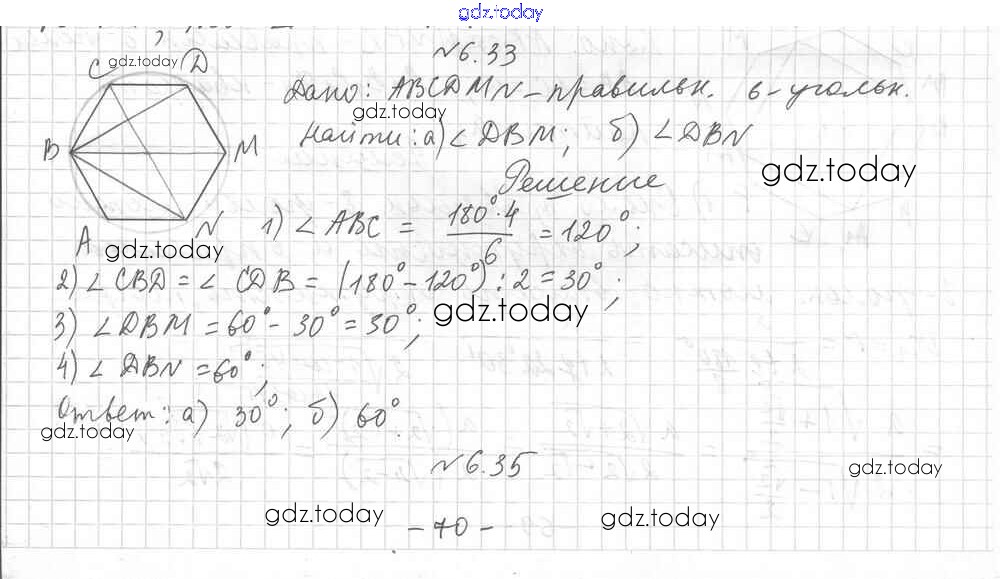 gdz.today
№6.33
C gdz.today D
Дано: ABCDMN – правильн. 6-угольн.
gdz.today
Найти: а) ∠DBM; б) ∠DBN
B M
gdz.today
Решение
N
1) ∠ABC = 180°·4 / 6 = 120°;
A gdz.today
2) ∠CBD = ∠CDB = (180° – 120°) : 2 = 30°;
gdz.today
3) ∠DBM = 60° – 30° = 30°;
4) ∠DBN = 60°;
Ответ: а) 30°; б) 60°.
gdz.today
№6.35
gdz.today
gdz.today
– 70 –
gdz.today